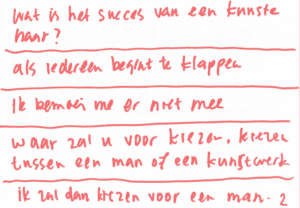 wat is het succes van een kunste
naar?
als iedereen begint te klappen
Ik bemoei me er niet mee
waar zal u voor kiezen, kiezen
tussen een man of een kunstwerk
ik zal dan kiezen voor een man. 2